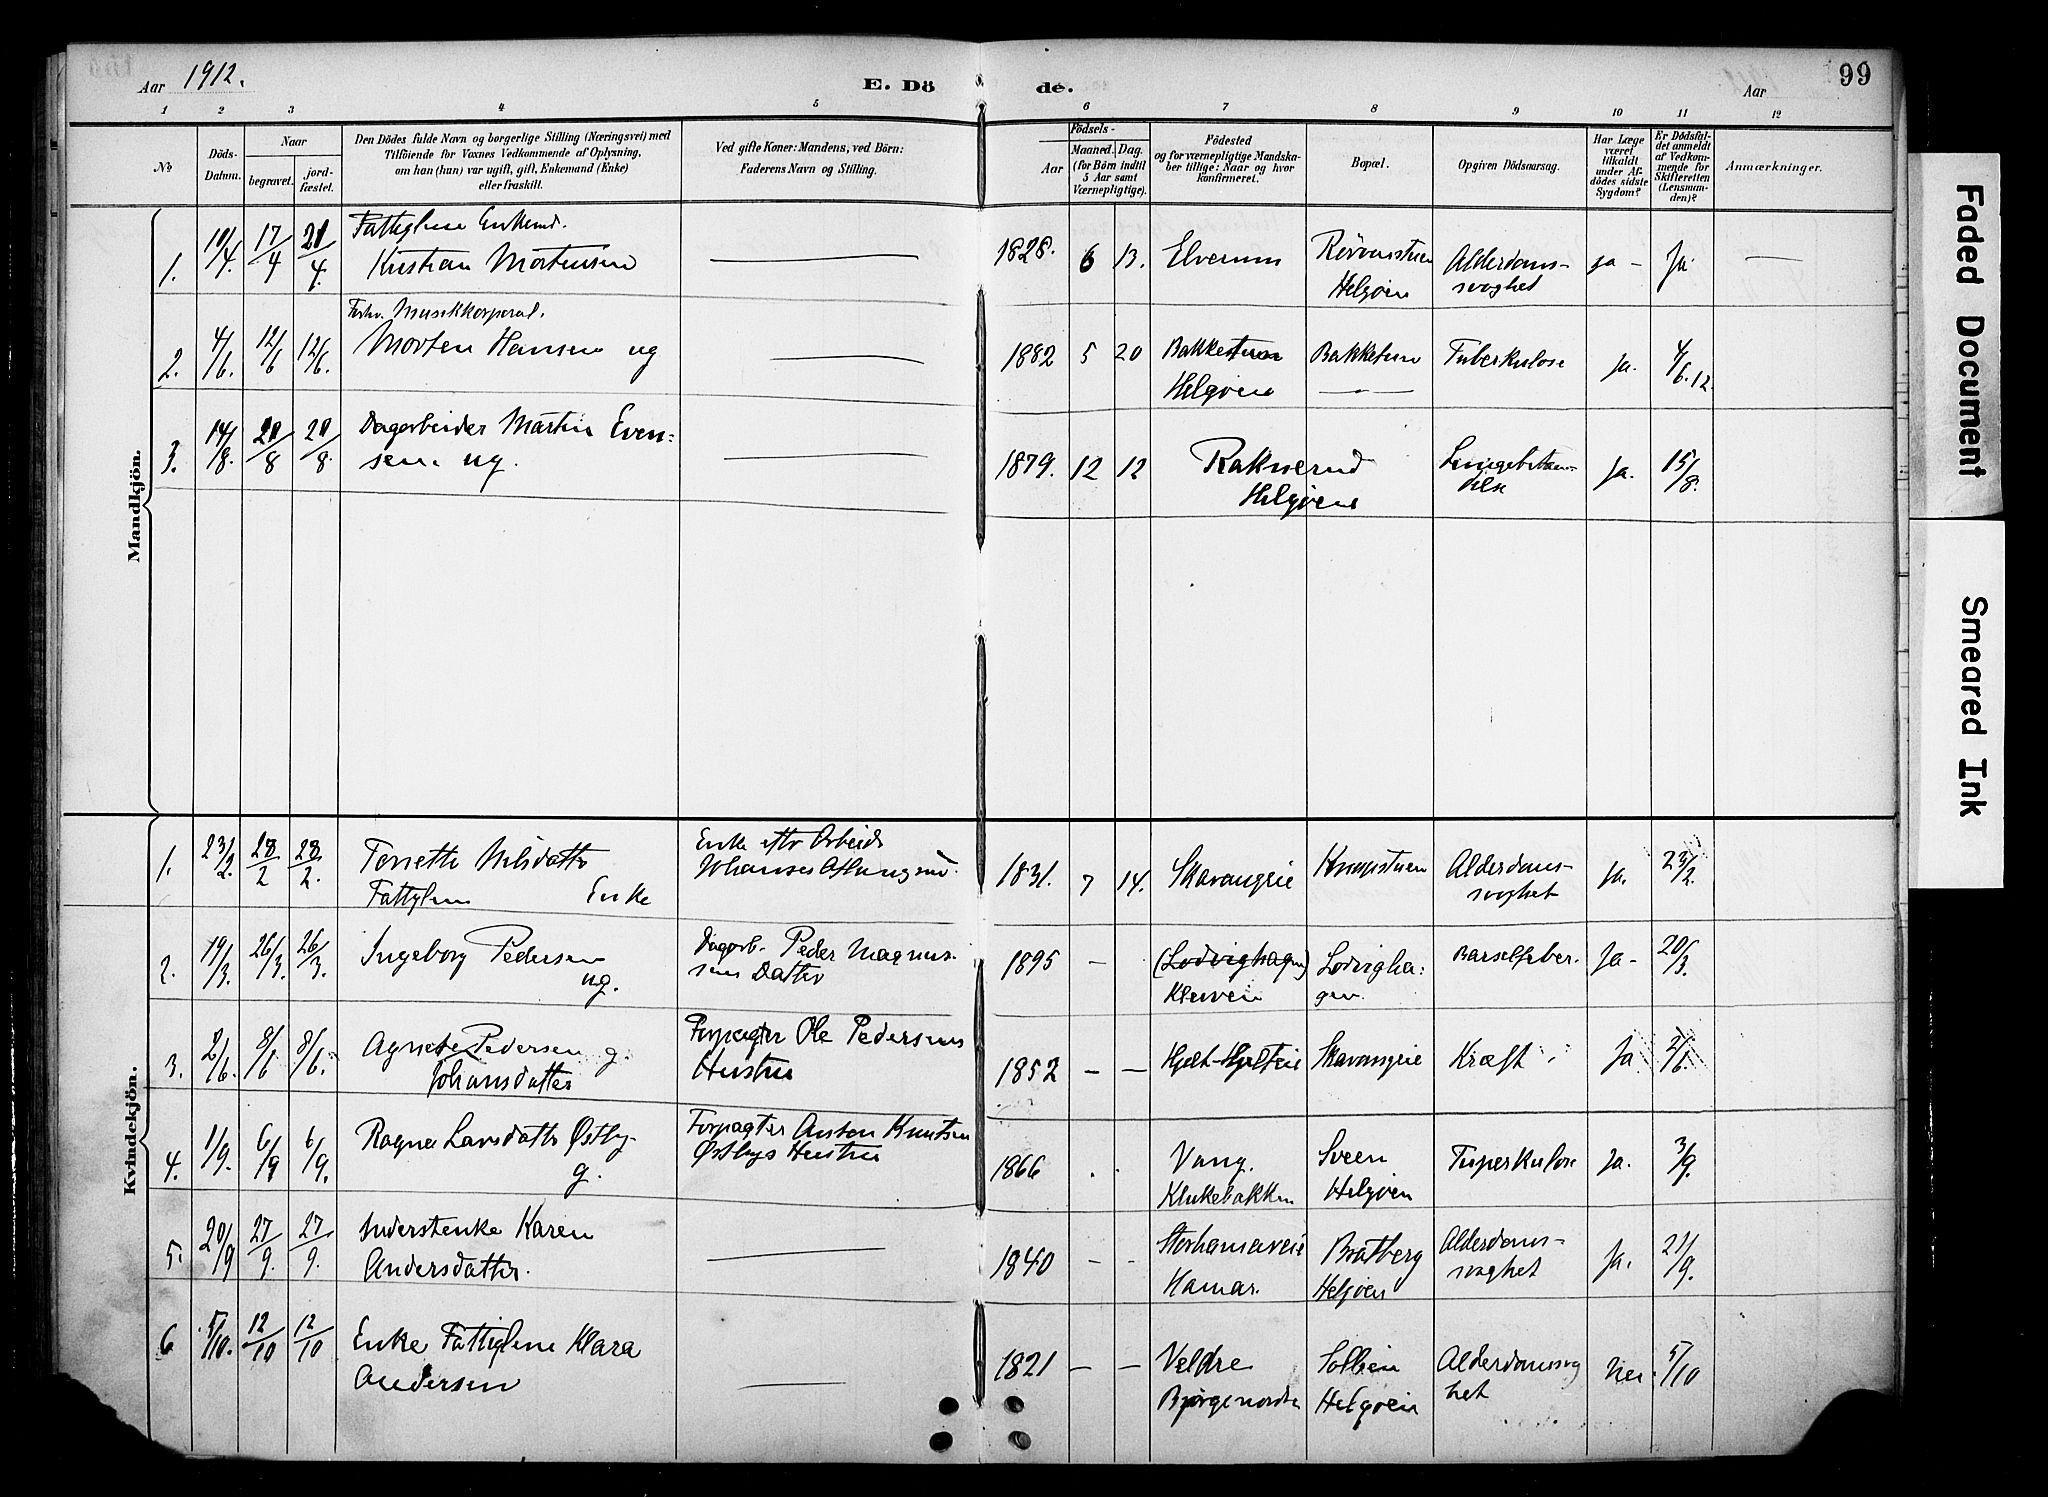 Aar 1912.
E. Dö de.
Aar
99
1 2 3 4 5 6 7 8 9 10 11 12
No
Döds-Datum.
Naar
begravet.
jordfæstet.
Den Dödes fulde Navn og borgerlige Stilling (Næringsvei) med
Tilföiende for Voxnes Vedkommende af Oplysning,
om han (hun) var ugift, gift, Enkemand (Enke)
eller fraskilt.
Ved gifte Koner: Mandens, ved Börn:
Faderens Navn og Stilling.
Födsels-
Aar
Maaned. Dag.
(for Börn indtil
5 Aar samt
Værnepligtige).
Födested
og for værnepligtige Mandska-
ber tillige: Naar og hvor
konfirmeret.
Bopæl.
Opgiven Dödsaarsag.
Har Læge
været
tilkaldt
under Af-
dödes sidste
Sygdom?
Er Dödsfal-
det anmeldt
af Vedkom-
mende for
Skifteretten
(Lensman-
den)?
Anmærkninger.
Mandkjön.
1. 10/4. 17/4 21/4. Fattiglem Enkemd.
Kristian Mortensen
1828. 6 13. Elverum
Helgøen
Alderdoms-
svaghet
ja - Ja
2. 4/6. 12/6 12/6. Forhv. Musikkorporal.
Morten Hansen ug
1882 5 20 Bakkestuen
Helgøen
Bakketuen
Tuberkulose
Ja. 4/6.12.
3. 14/8. 20/8 20/8. Dagarbeider Martin Even-
sen. ug.
1879. 12 12 Raknerud
Helgøen
Lungebetæn-
delse
Ja. 15/8.
Kvindekjön.
1. 23/2. 28/2 28/2. Nilsdatter
Fattiglem Enke
Enke eftr Arbeids
Johannes
1831. 7 14. Skavangeie
Alderdoms-
svaghet
Ja. 23/2.
2. 19/3. 26/3. 26/3. Ingeborg Pedersen
ug.
Dagarb. Peder Magnus-
sens Datter
1895 - (Lodvighagen)
Lodvigha-
gen.
Barselfeber.
Ja- 20/3.
3. 2/6. 8/6 8/6. Agnete Pedersen g.
Johansdatter
Forpagter Ole Pedersens
Hustru
1852 - - Skavangeie
Kræft
Ja 3/6.
4. 1/9. 6/9 6/9. Ragne Larsdatter Østby-
g.
Forpagter Anton Knutsen
Østbys Hustru
1866 . Vang.
Klukebakken
Sveen
Helgøen
Tuperkulose
Ja. 3/9.
5. 20/9 27/9. 27/9. Inderstenke Karen
Andersdatter.
1840 - - Storhamareie
Hamar.
Bratberg
Helgøen
Alderdoms-
svaghet
Ja. 21/9.
6 5/10. 12/10 12/10 Enke Fattiglem Klara
Andersen
1821 - - Veldre
Bjørgenordre
Sollien
Helgøen
Alderdomssvag
het
Nei. 5/10
Faded Document
Smeared Ink